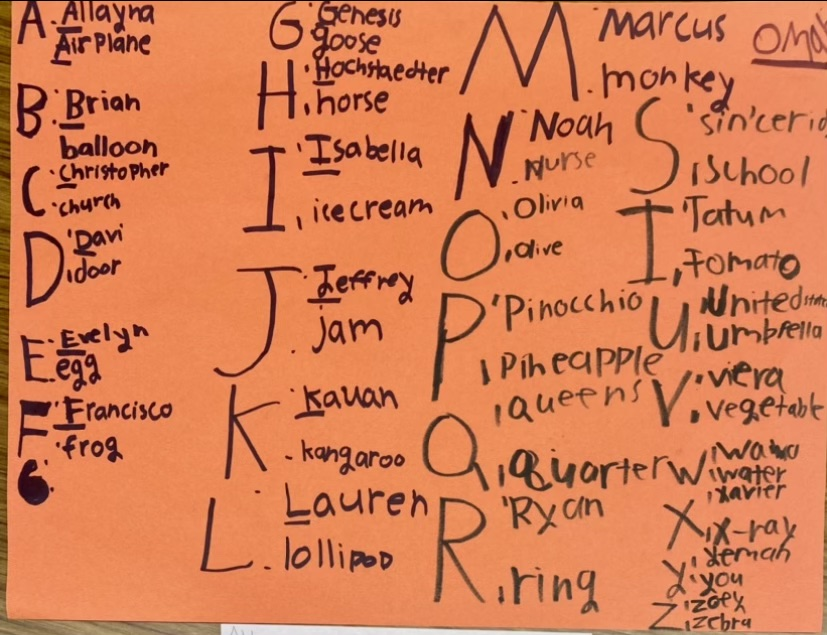 A. Allayna
Airplane
B. Brian
balloon
C. Christopher
church
D Davi
door
E. Evelyn
egg
F Francisco
frog
G Genesis
goose
H Hochstaedter
horse
I Isabella
icecream
J Jeffrey
jam
K Kauan
kangaroo
L Lauren
lollipop
M Marcus
monkey
N Noah
Nurse
O Olivia
olive
P Pinocchio
pineapple
queens
Q quarter
R Ryan
ring
S sin'cerid
school
T Tatum
Tomato
U United
Umbrella
V viera
vegetable
W
water
xavier
X x-ray
yeman
y you
zoey
Z zebra